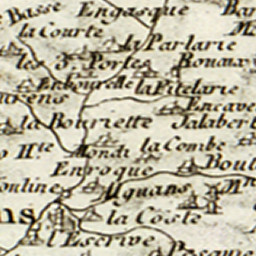 Basse Engasque Bar
la Courte
la Parlarie
les 3. Portes Bouaux
Enbourelle la Pitelarie
urens Encave
la Bouriette Jalabert
Mondi la Combe
Enroque Boul
Uguans
ns la Coste
l'Escrive